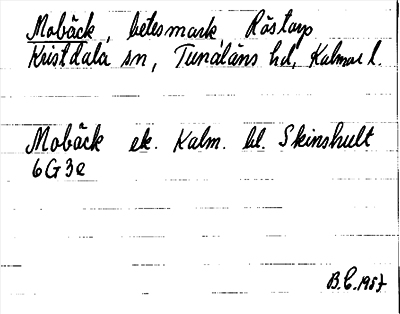 Mobäck, betesmark Röstorp
Kristdala sn, Tunaläns hd, Kalmar l.
Mobäck ek. Kalm. bl. Skinshult
6G3e
B.C. 1957